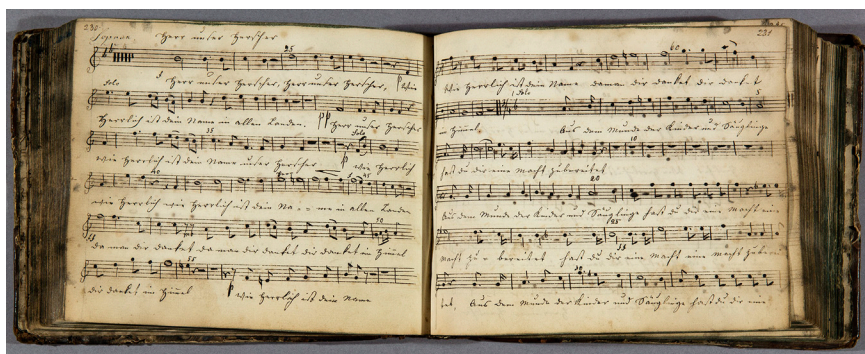 230
Soprano Herr unser Herscher
25
Herr unser Herscher, Herr unser Herscher, Wie
solo
Herrlich ist dein Name in allen Landen. Herr unser Herscher
35
solo
wie Herrlich ist dein Name unser Herscher wie Herrlich
40 45
wie Herrlich wie Herrlich ist dein Na - - me in allen Landen
50
da man dir danket da man dir danket dir danket im Himel
55
dir danket im Himel wie Herrlich ist dein Name
231
60
Wie Herrlich ist dein Name da man dir danket dir danket
solo 5
im Himel. Aus dem Munde der Kinder und Säuglinge
10
hast du dir eine Macht zubereitet
20
Aus dem Munde der Kinder und Säuglinge hast du dir eine Macht eine
25
Macht zu - bereitet hast du dir eine Macht eine Macht zuberei
30
tet, Aus dem Munde der Kinder und Säuglinge hast du dir eine